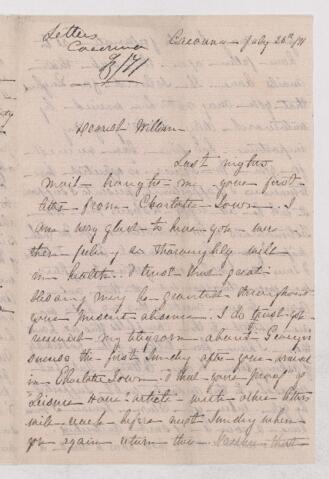 Letters
Cacouna
8/71
Cacouna - July 26th /71
Dearest William -
Last nights
mail brought me your first
letter from Charlotte Town. I
am very glad to hear you were
there safely & so thoroughly well
in health. I trust that great
blessing may be granted throughout
your present absence. I do trust you
received my telegram about George's
success the first Sunday after your arrival
in Charlotte Town. I had your proof of
"Leisure Hour" article with other letters
will reach before next Sunday when
you again return there